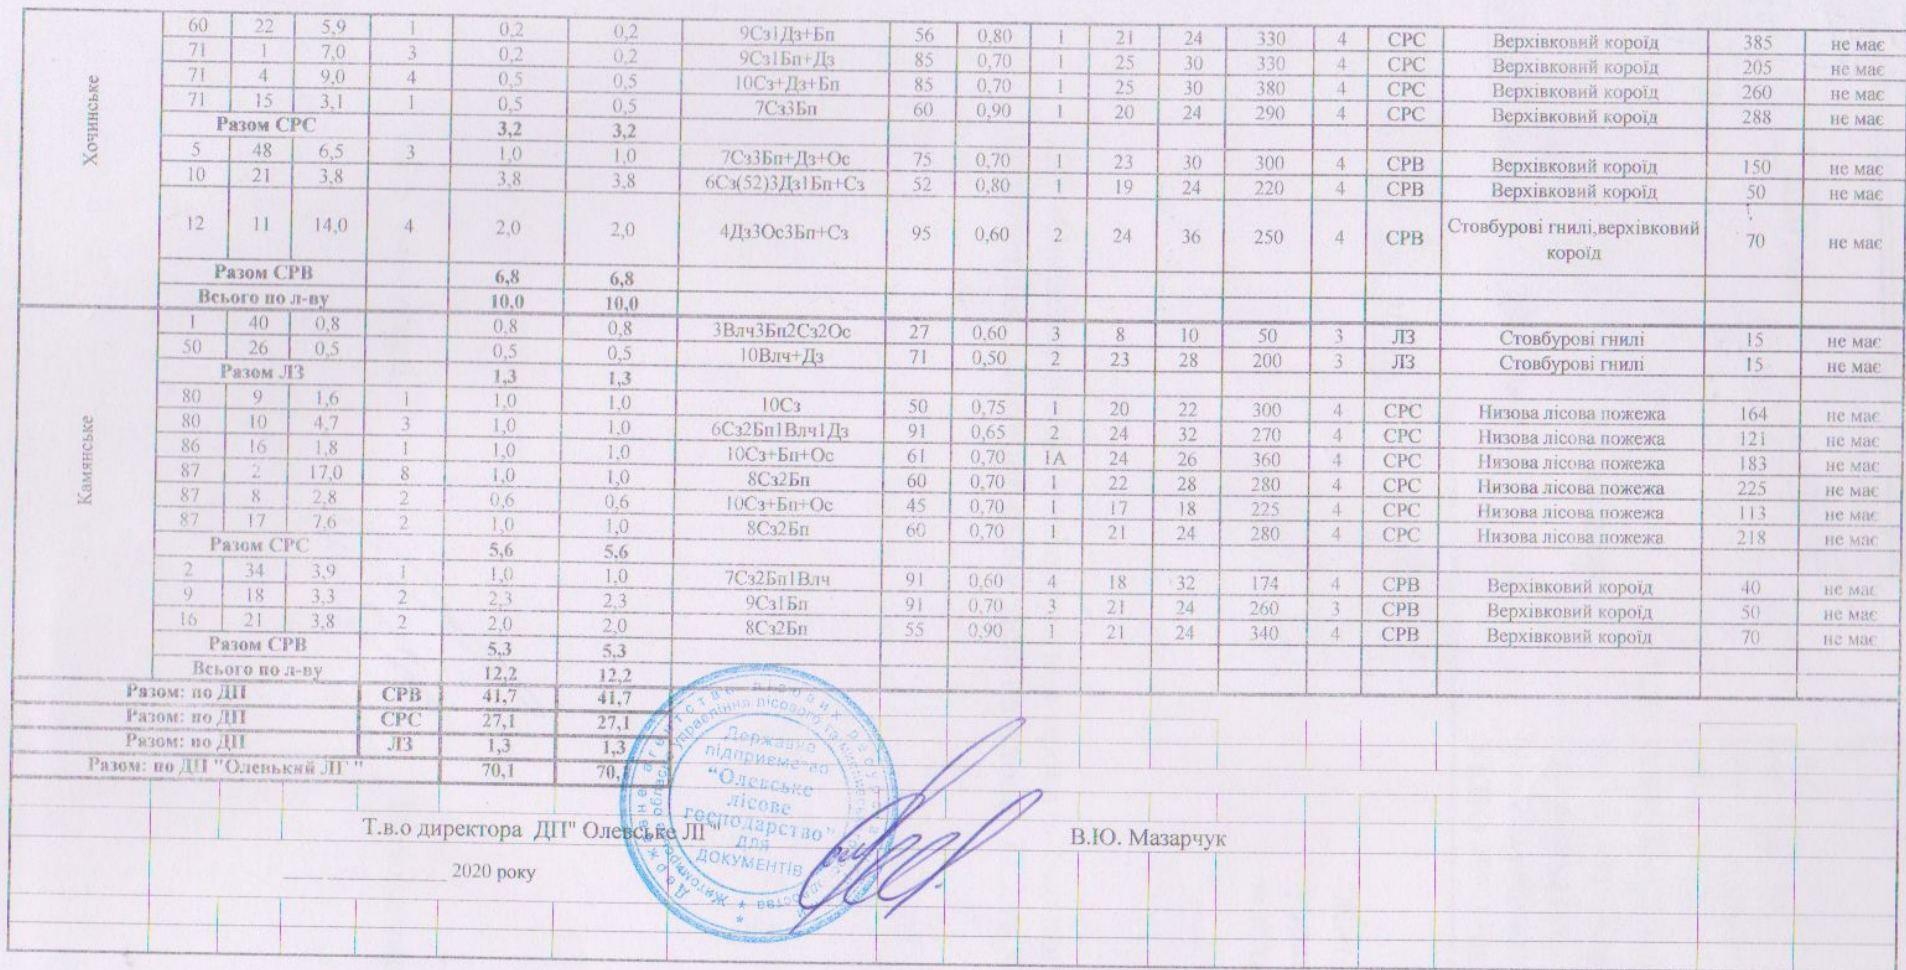 Хочинське
60 22 5,9 1 0,2 0,2 9Сз1Дз+Бп 56 0,80 1 21 24 330 4 СРС Верхівковий короїд 385 не має
71 1 7,0 3 0,2 0,2 9Сз1Бп+Дз 85 0,70 1 25 30 330 4 СРС Верхівковий короїд 205 не має
71 4 9,0 4 0,5 0,5 10Сз+Дз+Бп 85 0,70 1 25 30 380 4 СРС Верхівковий короїд 260 не має
71 15 3,1 1 0,5 0,5 7Сз3Бп 60 0,90 1 20 24 290 4 СРС Верхівковий короїд 288 не має
Разом СРС 3,2 3,2
5 48 6,5 3 1,0 1,0 7Сз3Бп+Дз+Ос 75 0,70 1 23 30 300 4 СРВ Верхівковий короїд 150 не має
10 21 3,8 3,8 3,8 6Сз(52)3Дз1Бп+Сз 52 0,80 1 19 24 220 4 СРВ Верхівковий короїд 50 не має
12 11 14,0 4 2,0 2,0 4Дз3Ос3Бп+Сз 95 0,60 2 24 36 250 4 СРВ Стовбурові гнилі,верхівковий короїд 70 не має
Разом СРВ 6,8 6,8
Всього по л-ву 10,0 10,0
Камянське
1 40 0,8 0,8 0,8 3Влч3Бп2Сз2Ос 27 0,60 3 8 10 50 3 ЛЗ Стовбурові гнилі 15 не має
50 26 0,5 0,5 0,5 10Влч+Дз 71 0,50 2 23 28 200 3 ЛЗ Стовбурові гнилі 15 не має
Разом ЛЗ 1,3 1,3
80 9 1,6 1 1,0 1,0 10Сз 50 0,75 1 20 22 300 4 СРС Низова лісова пожежа 164 не має
80 10 4,7 3 1,0 1,0 6Сз2Бп1Влч1Дз 91 0,65 2 24 32 270 4 СРС Низова лісова пожежа 121 не має
86 16 1,8 1 1,0 1,0 10Сз+Бп+Ос 61 0,70 1А 24 26 360 4 СРС Низова лісова пожежа 183 не має
87 2 17,0 8 1,0 1,0 8Сз2Бп 60 0,70 1 22 28 280 4 СРС Низова лісова пожежа 225 не має
87 8 2,8 2 0,6 0,6 10Сз+Бп+Ос 45 0,70 1 17 18 225 4 СРС Низова лісова пожежа 113 не має
87 17 7,6 2 1,0 1,0 8Сз2Бп 60 0,70 1 21 24 280 4 СРС Низова лісова пожежа 218 не має
Разом СРС 5,6 5,6
2 34 3,9 1 1,0 1,0 7Сз2Бп1Влч 91 0,60 4 18 32 174 4 СРВ Верхівковий короїд 40 не має
9 18 3,3 2 2,3 2,3 9Сз1Бп 91 0,70 3 21 24 260 3 СРВ Верхівковий короїд 50 не має
16 21 3,8 2 2,0 2,0 8Сз2Бп 55 0,90 1 21 24 340 4 СРВ Верхівковий короїд 70 не має
Разом СРВ 5,3 5,3
Всього по л-ву 12,2 12,2
Разом: по ДП СРВ 41,7 41,7
Разом: по ДП СРС 27,1 27,1
Разом: по ДП ЛЗ 1,3 1,3
Разом: по ДП "Оленький ЛГ " 70,1 70,
Державне
підприємство
"Олевське
лісове
господарство"
для
документів
Т.в.о директора ДП" Олевське ЛГ" В.Ю. Мазарчук
2020 року